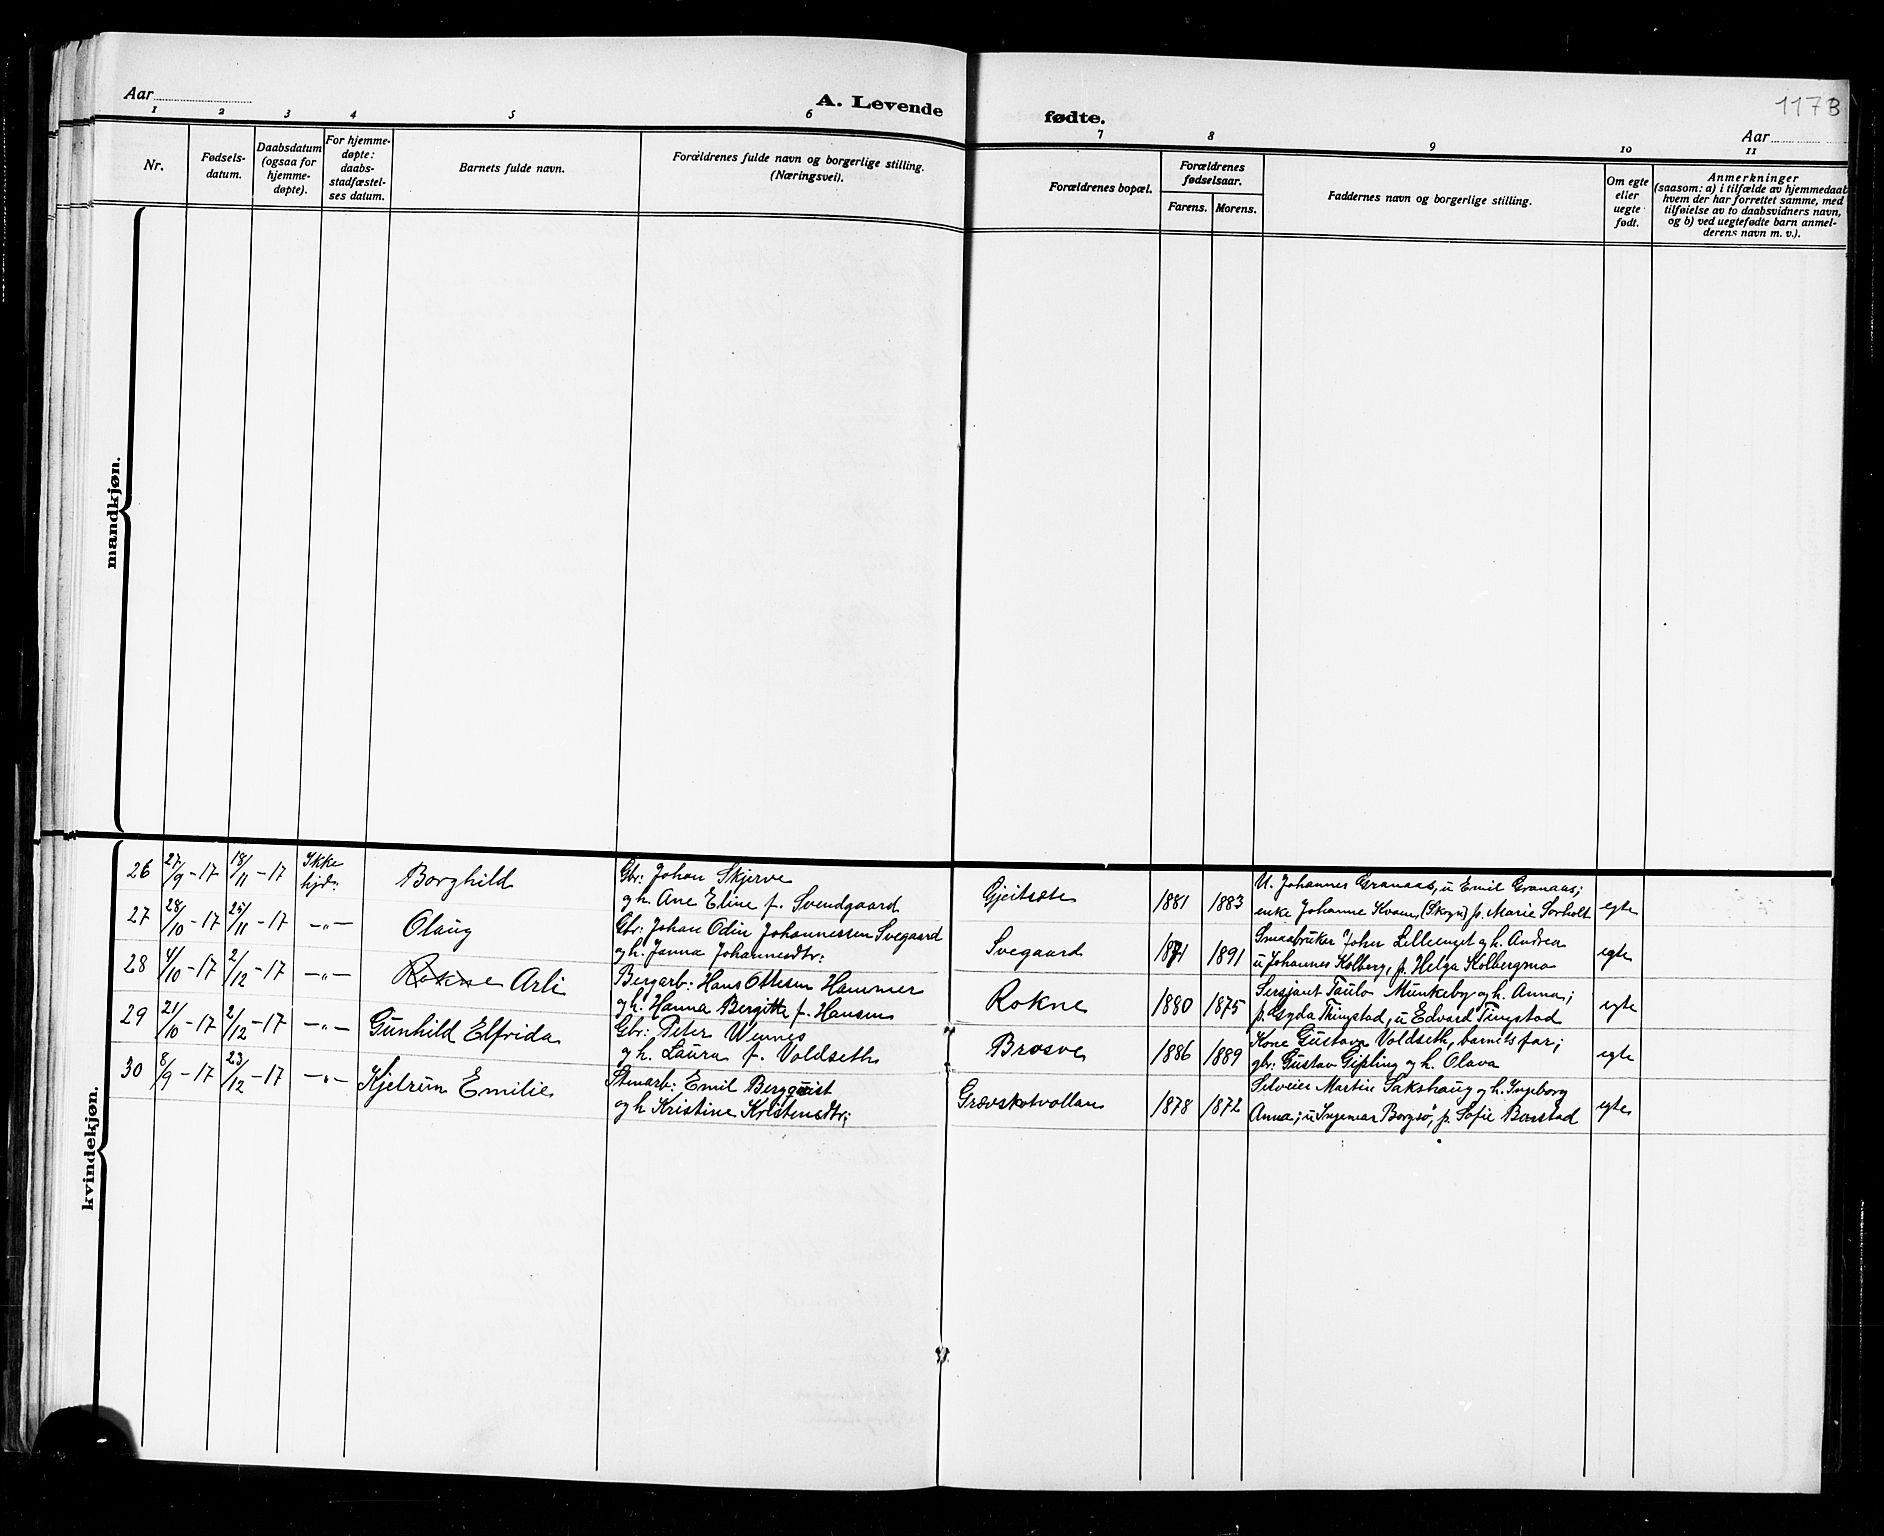 Aar
A. Levende
fødte.
1173
Aar
1 2 3 4 5 6 7 8 9 10 11
Nr.
Fødsels-
datum.
Daabsdatum
(ogsaa for
hjemme-
døpte).
For hjemme-
døpte:
daabs-
stadfæstel-
ses datum.
Barnets fulde navn.
Forældrenes fulde navn og borgerlige stilling.
(Næringsvei).
Forældrenes bopæl.
Forældrenes
fødselsaar.
Farens. Morens.
Faddernes navn og borgerlige stilling.
Om egte
eller
uegte
født.
Anmerkninger
(saasom: a) i tilfælde av hjemmedaab
hvem der har forrettet samme, med
tilføielse av to daabsvidners navn,
og b) ved uegtefødte barn anmel-
derens navn m. v.).
mandkjøn.
kvindekjøn.
26 27/9-17 18/11-17 Ikke hjd: Borghild Gbr: Johan Skjerve
og h. Ane Eline f. Svendgaard Gjeitsæte 1881 1883 U. Johannes Granaas, u Emil Granaas;
enke Johanne Kvam (Skogn) p. Marie Sorholt egte
27 28/10-17 25/11-17 -"- Olaug Gbr: Johan Odin Johannessen Svegaard
og h. Janna Johannesdtr: Svegaard 1871 1891 Smaabruker John Lilleenget og h. Andrea
u Johannes Kolberg, p. Helga Kolbergmo egte
28 4/10-17 2/12-17 -"- Rokne Arli Bergarb: Hans Ottesen Hammer
og h. Hanna Bergitte f. Hansen Rokne 1880 1875 Sersjant Paulo Munkeby og h. Anna;
p. Gyda Tingstad, u Edvard Tingstad egte
29 21/10-17 2/12-17 -"- Gunhild Elfrida Gbr: Peter Wennes
og h. Laura f. Voldseth Brosve 1886 1889 Kone Gustava Voldseth, barnets far;
gbr: Gustav Gipling og h. Olava egte
30 8/9-17 23/12-17 -"- Kjelrun Emilie Stenarb: Emil Bergquist
og h Kristine Kristensdtr; Grævskotvollan 1878 1872 Selveier Martin Sakshaug og h. Ingeborg
Anna; u Ingemar Borgsø, p. Sofie Barstad egte